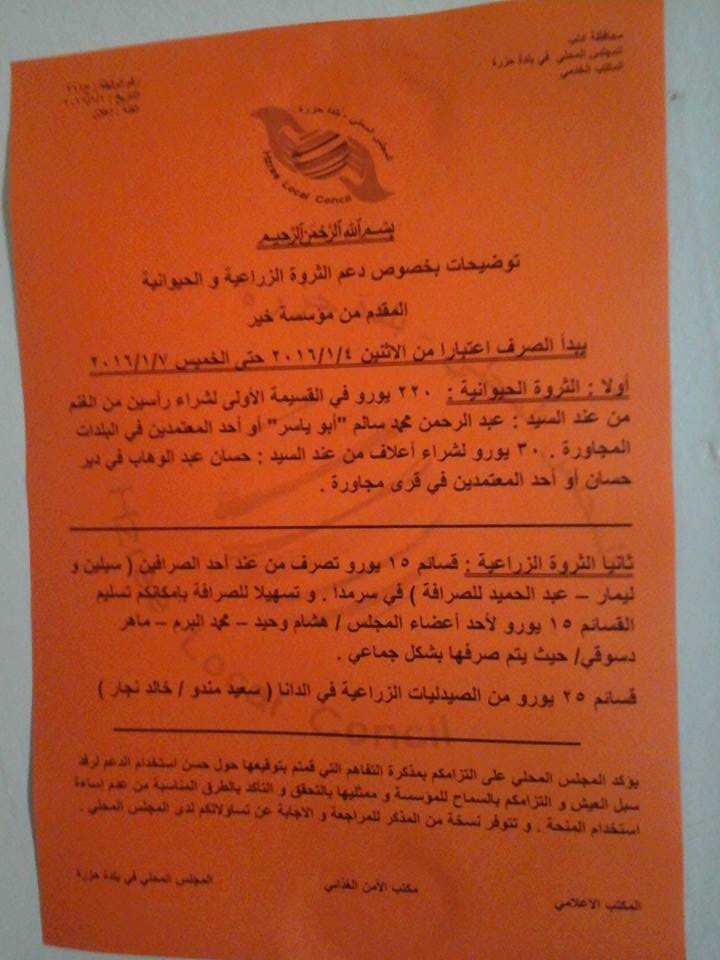 محافظة ادلب
المجلس المحلي في بلدة حزرة
المكتب الخدمي
رقم الوثيقة :
التاريخ : ٢٠١٦/١/٢
المجلس المحلي - بلدة حزرة
Hzree Local Concil
بسم الله الرحمن الرحيم
توضيحات بخصوص دعم الثروة الزراعية و الحيوانية
المقدم من مؤسسة خير
يبدأ الصرف اعتبارا من الاثنين ٢٠١٦/١/٤ حتى الخميس ٢٠١٦/١/٧
أولا : الثروة الحيوانية : ٢٢٠ يورو في القسيمة الأولى لشراء رأسين من الغنم
من عند السيد : عبد الرحمن محمد سالم "أبو ياسر" أو أحد المعتمدين في البلدات
المجاورة . ٣٠ يورو لشراء أعلاف من عند السيد : حسان عبد الوهاب في دير
حسان أو أحد المعتمدين في قرى مجاورة .
ثانيا الثروة الزراعية : قسائم ١٥ يورو تصرف من عند أحد الصرافين ( سيلين و
ليمار – عبد الحميد للصرافة ) في سرمدا . و تسهيلا للصرافة بإمكانكم تسليم
القسائم ١٥ يورو لأحد أعضاء المجلس / هشام وحيد – محمد البرم – ماهر
دسوقي/ حيث يتم صرفها بشكل جماعي .
قسائم ٢٥ يورو من الصيدليات الزراعية في الدانا ( سعيد مندو / خالد نجار )
يؤكد المجلس المحلي على التزامكم بمذكرة التفاهم التي قمتم بتوقيعها حول حسن استخدام الدعم لرفد
سبل العيش و التزامكم بالسماح للمؤسسة و ممثليها بالتحقق و التأكد بالطرق المناسبة من عدم إساءة
استخدام المنحة . و تتوفر نسخة من المذكر للمراجعة و الاجابة عن تساؤلاتكم لدى المجلس المحلي .
المكتب الاعلامي
مكتب الأمن الغذائي
المجلس المحلي في بلدة حزرة